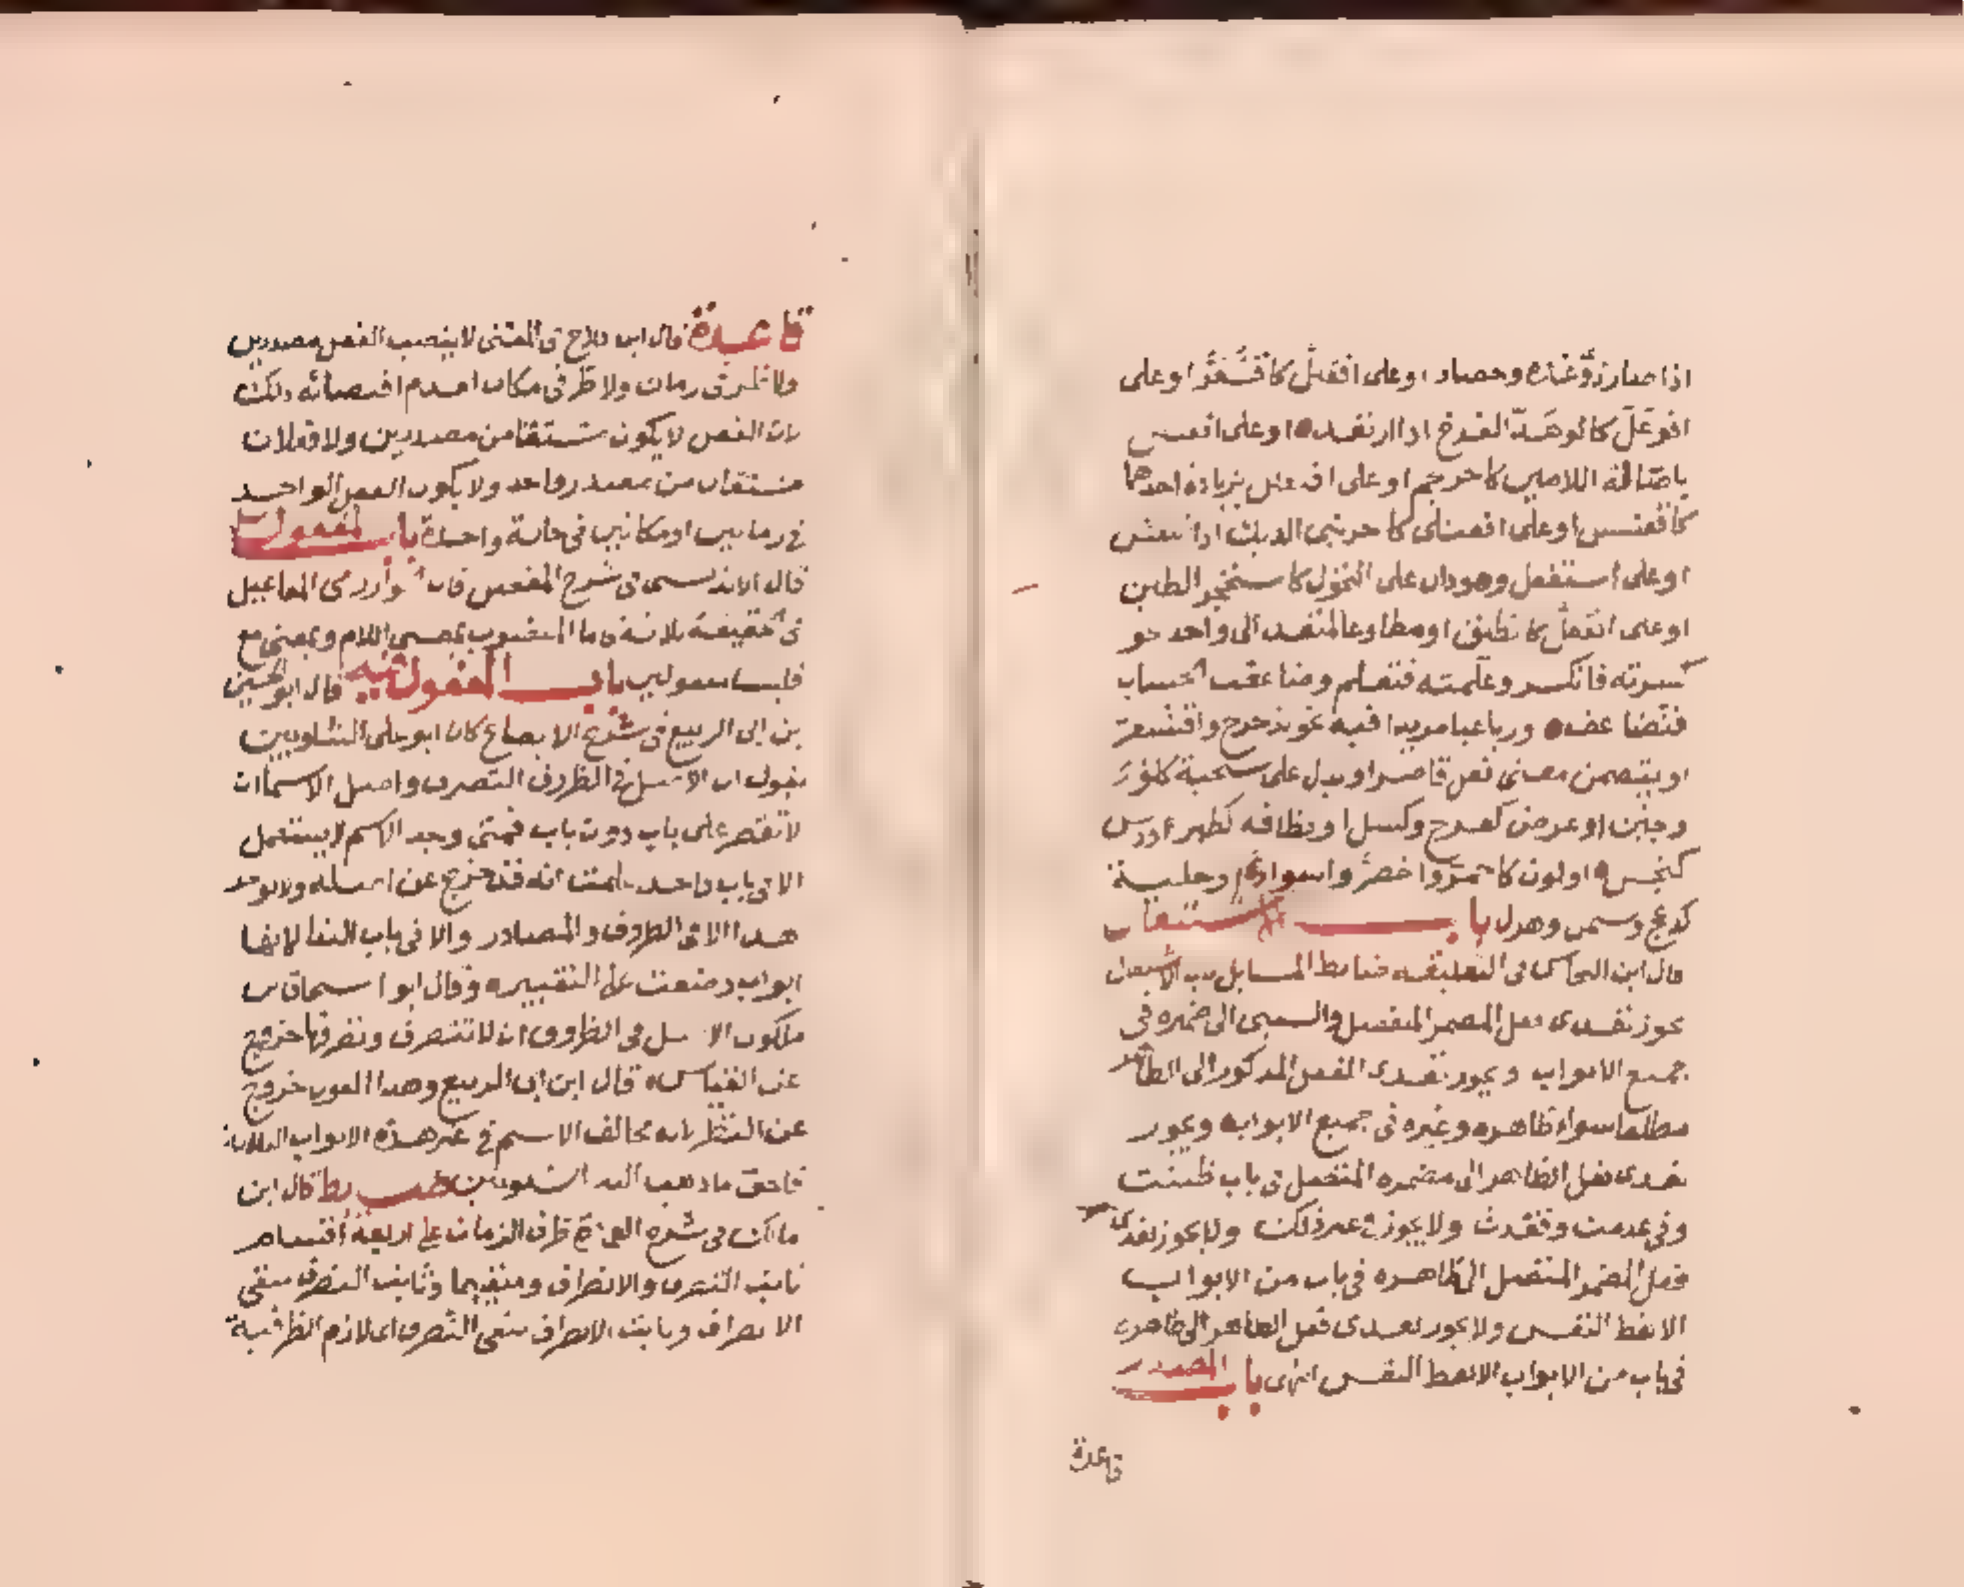 اذا صار ذو غدة وحصاد او على افعلل كاقشعر او على
افوعل كاكوهد الفرخ اذا ارتعد او على افعنلل
باصالة اللامين كاحرنجم او على افعنلل بزيادة احدهما
كاقعنسس او على افعنلى كاحرنبى الديك اذا انتفش
او على استفعل وهو دال على التحول كاستحجر الطين
او على انفعل كانطلق او مطاوعا لمتعد الى واحد نحو
كسرته فانكسر وعلمته فتعلم وضاعفت الحساب
فتضاعف ورباعيا مزيدا فيه نحو تدحرج واقشعر
او يتضمن معنى فعل قاصر او يدل على سجية كلؤم
وجبن او عرض كفرح وكسل او نظافة كطهر او دنس
كنجس او لون كاحمر واخضر وادم وحلية
كدعج وسمن وهزل باب الاشتغال
قال ابن النحاس فى التعليقة ضابط المسايل باب الاشتغال
يجوز تعدى فعل المضمر المنفصل والسببى الى ضميره فى
جميع الابواب ويجوز تعدى الفعل المذكور الى الظاهر
مطلقا سواء ظاهره وغيره فى جميع الابواب ويجوز
تعدى فعل الظاهر الى مضمره المتصل فى باب ظننت
وفى عدمت وفقدت ولا يجوز فى غير ذلك ولا يجوز تعدى
فعل المضمر المتصل الى ظاهره فى باب من الابواب
الا لفظ النفس ولا يجوز تعدى فعل الظاهر الى ظاهره
فى باب من الابواب الا لفظ النفس انتهى باب المصدر
قاعدة
قاعدة قال ابن فلاح فى المغنى لا ينصب الفعل مصدرين
ولا ظرفى زمان ولا ظرفى مكان لعدم اقتضائه ذلك
لان الفعل لا يكون مشتقا من مصدرين ولا فعلان
مشتقان من مصدر واحد ولا يكون الفعل الواحد
فى زمانين او مكانين فى حالة واحدة باب المفعول له
قال الاندلسى فى شرح المفصل قال الخوارزمى المفاعيل
فى الحقيقة ثلاثة فاما المنصوب بمعنى اللام وبمعنى مع
فليسا مفعولين باب المفعول فيه قال ابو الحسين
بن ابى الربيع فى شرح الايضاح كان ابو على الشلوبين
يقول ان الاصل فى الظروف التصرف واصل الاسماء ان
لا تقتصر على باب دون باب فمتى وجد الاسم لا يستعمل
الا فى باب واحد علمت انه قد خرج عن اصله ولا يوجد
هذا الا فى الظروف والمصادر والا فى باب النداء لانها
ابواب وضعت على التغيير وقال ابو اسحاق بن
ملكون الاصل فى الظروف ان لا تتصرف وتصرفها خروج
عن القياس قال ابن ابى الربيع وهذا القول خروج
عن النظر لانه مخالف الاسم فى غير هذه الابواب الثلاثة
فالحق ما ذهب اليه الشلوبين ضابط قال ابن
مالك فى شرح العمدة ظرف الزمان على اربعة اقسام
ثابت التصرف والانصراف ومنفيهما وثابت التصرف منفى
الانصراف وثابت الانصراف منفى التصرف اى لازم الظرفية